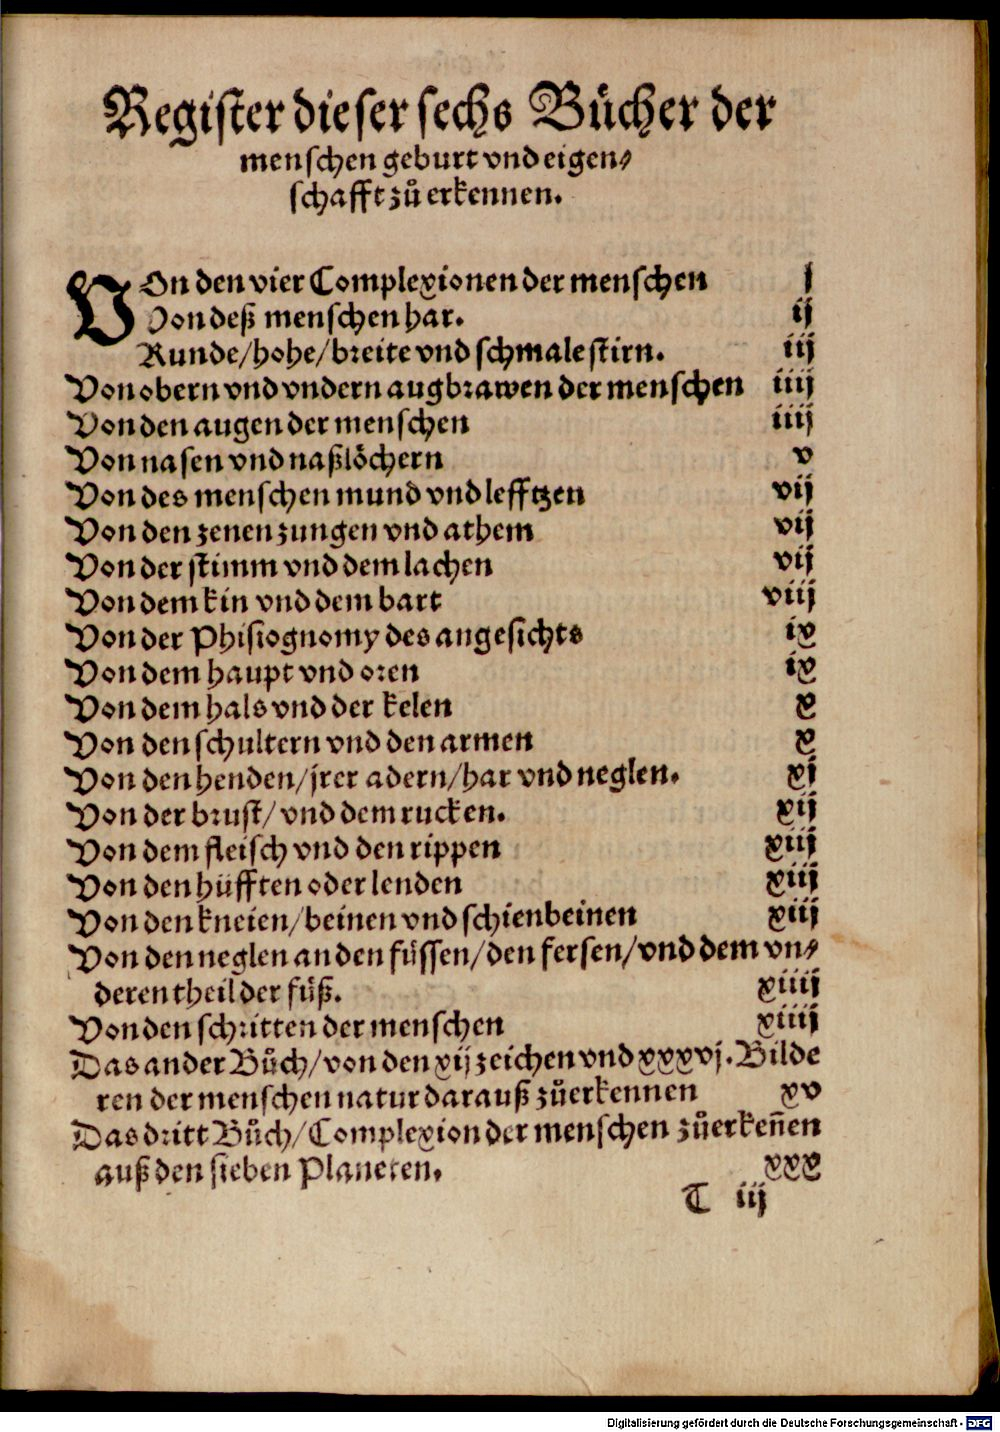 Regiſter dieſer ſechs Bücher der
menſchen geburt vnd eigen⸗
ſchafft zů erkennen.
VOn den vier Complexionen der menſchen j
Von deß menſchen har. ij
Runde/hohe/breite vnd ſchmale ſtirn. iij
Von obern vnd vndern augbrawen der menſchen iiij
Von den augen der menſchen iiij
Von naſen vnd naßlöchern v
Von des menſchen mund vnd lefftzen vij
Von den zenen zungen vnd athem vij
Von der ſtimm vnd dem lachen vij
Von dem kin vnd dem bart viij
Von der Phiſiognomy des angeſichts ix
Von dem haupt vnd oren ix
Von dem hals vnd der kelen x
Von den ſchultern vnd den armen x
Von den henden/jrer adern/har vnd neglen. xj
Von der bruſt/ vnd dem rucken. xij
Von dem fleiſch vnd den rippen xiij
Von den hüfften oder lenden xiij
Von den kneien/beinen vnd ſchienbeinen xiij
Von den neglen an den füſſen/den ferſen/vnd dem vn⸗
deren theil der fůß. xiiij
Von den ſchritten der menſchen xiiij
Das ander Bůch/von den xij zeichen vnd xxxvj. Bilde
ren der menſchen natur darauß zůerkennen xv
Das dritt Bůch/Complexion der menſchen zůerkeñen
auß den ſieben Planeten. xxx
T iij
Digitalisierung gefördert durch die Deutsche Forschungsgemeinschaft - DFG